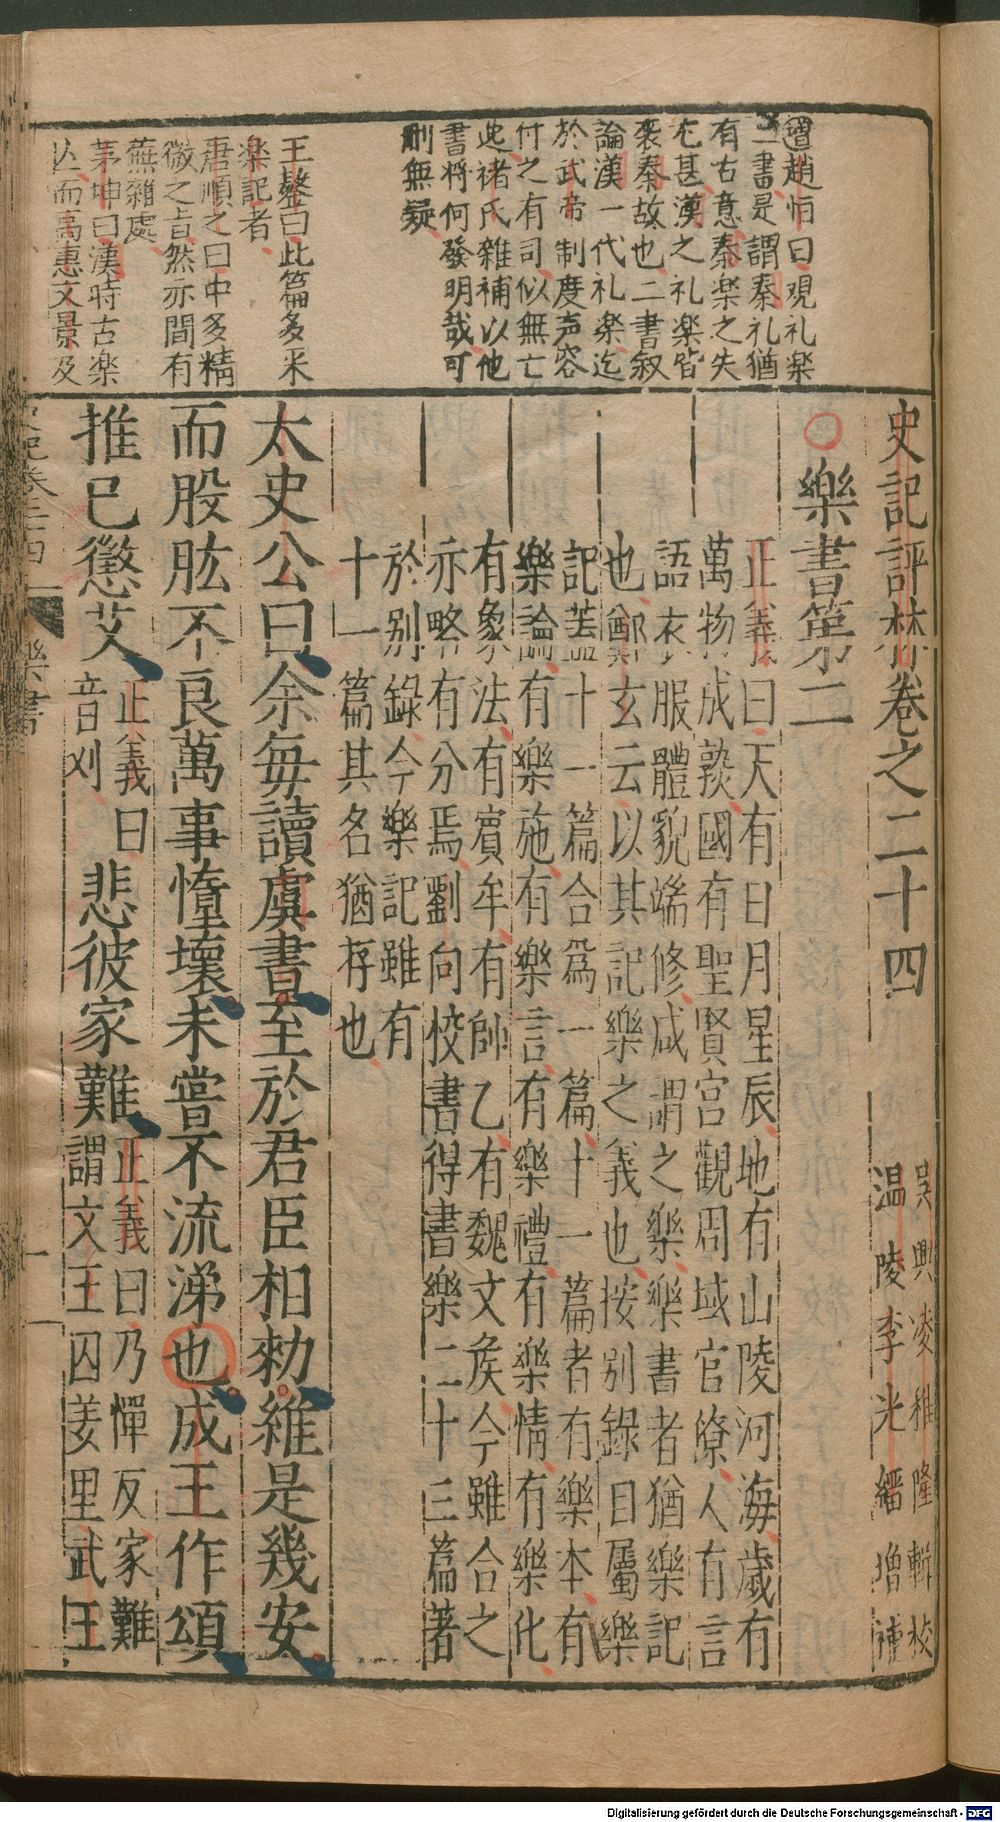 遭趙恒曰觀礼楽
二書是謂秦礼猶
有古意秦楽之失
乞甚漢之礼楽皆
袭秦故也二書叙
論漢一代礼楽迄
於武帝制度声容
付之有司似無亡
逸褚氏雜補以他
書将何發明哉可
刪無疑
王鏊曰此篇多采
楽記者
唐順之曰中多精
微之旨然亦間有
蕪雜處
茅坤曰漢時古楽
亾而高惠文景及
史記評林卷之二十四
吳興凌稚隆輯校
温陵李光縉增補
樂書第二
正義曰天有日月星辰地有山陵河海歲有
萬物成熟國有聖賢宫觀周域官僚人有言
語衣服體貌端修咸謂之樂樂書者猶樂記
也鄭玄云以其記樂之義也按别錄曰屬樂
記蓋十一篇合爲一篇十一篇者有樂本有
樂論有樂施有樂言有樂禮有樂情有樂化
有象法有賓牟有帥乙有魏文矦今雖合之
亦略有分焉劉向校書得書樂二十三篇著
於别錄今樂記雖有
十一篇其名猶存也
太史公曰余每讀虞書至於君臣相勑維是幾安
而股肱不良萬事惰壞未嘗不流涕也成王作頌
推已懲艾
正義曰
音刈
悲彼家難
正義曰乃憚反家難
謂文王囚羑里武王
史記卷二十四
樂書
一
Digitalisierung gefördert durch die Deutsche Forschungsgemeinschaft - DFG